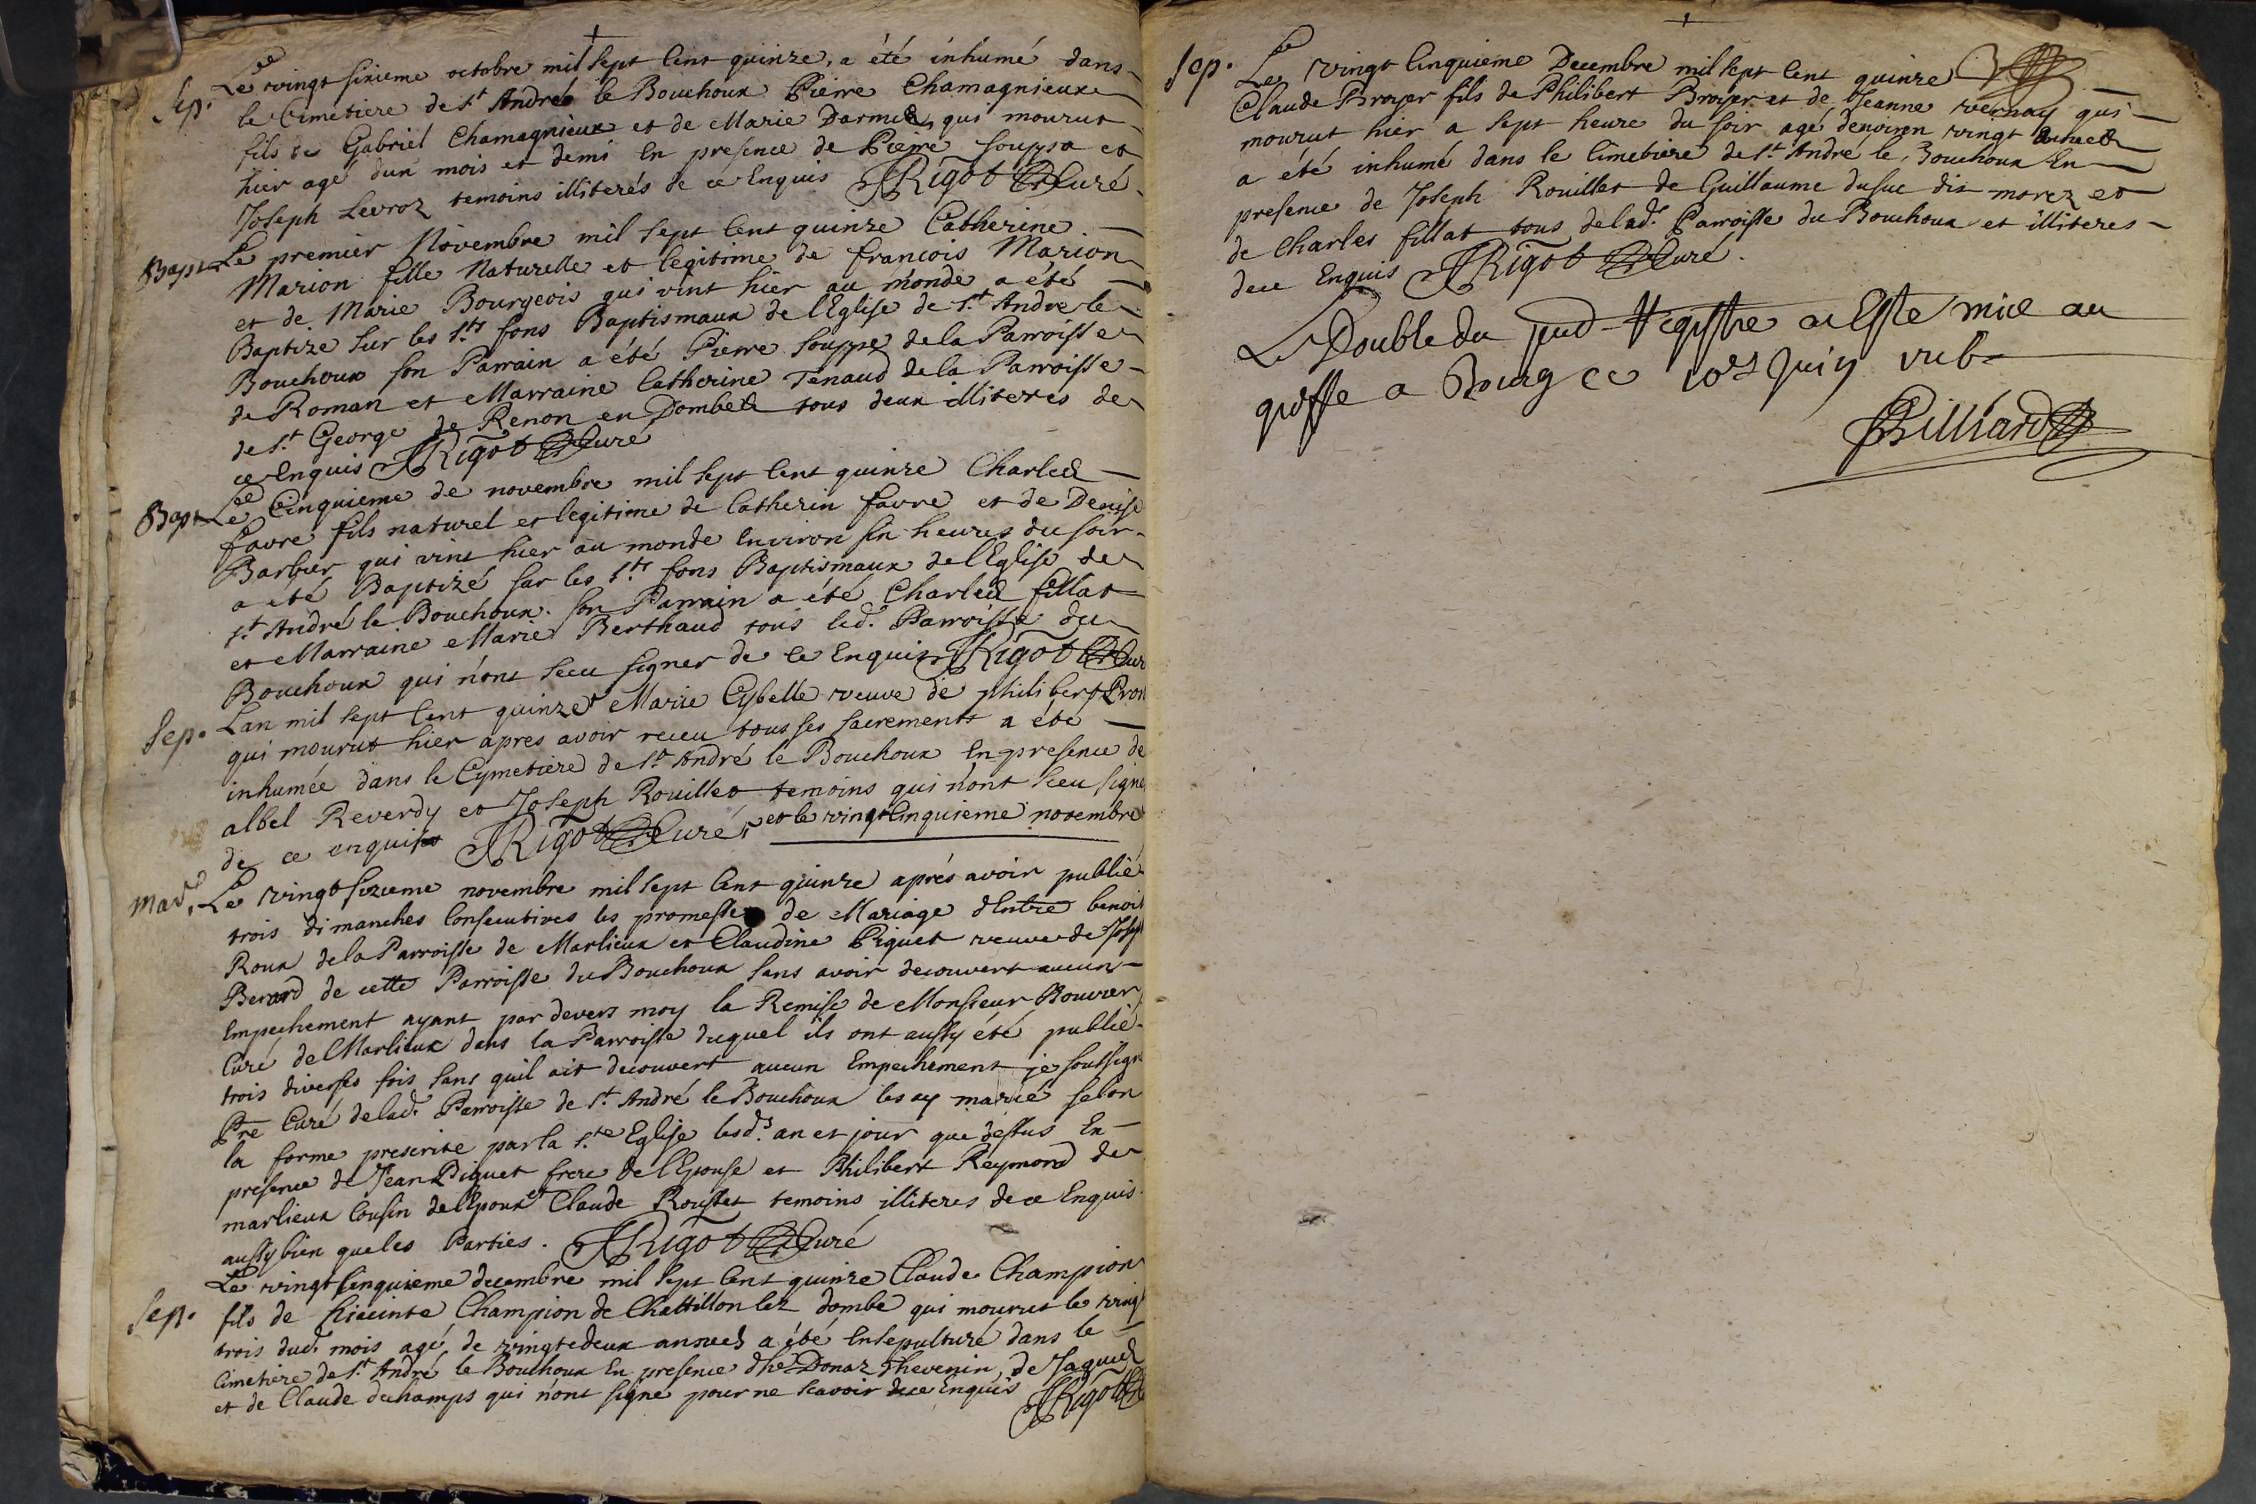 Sep. Le vingt sixieme octobre mil sept cent quinze, a été inhumé dans
le cimetiere de St André le Bouchoux Pierre Chamagnieux
fils de Gabriel Chamagnieux et de Marie Darmes, qui mourut
hier agé d'un mois et demi en presence de Pierre souppa et
Joseph Levroz temoins illiterés de ce enquis JRigot Curé
Bapt. Le premier Novembre mil sept cent quinze Catherine
Marion fille Naturelle et legitime de francois Marion
et de Marie Bourgeois qui vint hier au monde a été
Baptize sur les Sts fons Baptismaux de l'Eglise de St Andre le
Bouchoux son Parrain a été Pierre souppe de la Parroisse
de Roman et Marraine Catherine Tenaud de la Parroisse
de St George de Renon en Dombes tous deux illiteres de
ce Enquis JRigot Curé
Bapt. Le Cinquieme de novembre mil sept cent quinze Charles
favre fils naturel et legitime de Catherin favre et de Denise
Barbier qui vint hier au monde environ six heures du soir
a été Baptizé sur les Sts fons Baptismaux de l'Eglise de
St André le Bouchoux. son Parrain a été Charles fillat
et Marraine Marie Berthaud tous led. Parroisse du
Bouchoux qui n'ont sceu signer de ce Enquis JRigot Cur
Sep. Lan mil sept cent quinze + Marie Cybelle veuve de philibert
qui mourut hier apres avoir receu tous ses sacrements a été
inhumée dans le Cymetiere de St André le Bouchoux en presence de
albel Reverdy et Joseph Rouillet temoins qui n'ont sceu signe
de ce enquis JRigot Curé + et le vingt cinquieme novembre
Mar. Le vingt sixieme novembre mil sept cent quinze aprés avoir publié
trois dimanches consecutives les promesses de Mariage d'Entre benoit
Roux de la Parroisse de Marlieux et Claudine Piguet veuve de Joseph
Berard de cette Parroisse du Bouchoux sans avoir decouvert aucun
Empechement ayant par devers moy la Remise de Monsieur Bouvier
Curé de Marlieux dans la Parroisse duquel ils ont aussy été publié
trois diverses fois sans quil ait decouvert aucun Empechement je soussigné
Ptre Curé de lad. Parroisse de St André le Bouchoux les ay marié selon
la forme prescrite par la Ste Eglise lesd. an et jour que dessus En
presence de Jean Piguet frere de l'Epouse et Philibert Reymond de
marlieux Cousin de l'Epoux et Claude Roussset temoins illiteres de ce Enquis
aussy bien que les Parties. JRigot Curé
Sep. Le vingt cinquieme decembre mil sept cent quinze Claude Champion
fils de hiacinte Champion de Chastillon lez dombe qui mourut le vingt
trois dud. mois agé de vingtedeux annees a été Ensepulturé dans le
Cimetiere de St André le Bouchoux En presence Donaz Thevenin, de Jaques
et de Claude duchamps qui n'ont signé pour ne scavoir de ce enquis JRigot
Sep. Le vingt Cinquieme Decembre mil sept cent quinze
Claude Broyer fils de Philibert Broyer et de Jeanne vernay qui
mourut hier a sept heure du soir agé denviron vingt annees
a été inhumé dans le Cimetiere de St André le Bouchoux En
presence de Joseph Rouillet de Guillaume dusuc dit morez et
de Charles fillat tous de lad. Parroisse du Bouchoux et illiteres
de ce Enquis JRigot Curé.
Le Double du pnt Registre a Este mis au
greffe a Bourg ce Juin
Billiard